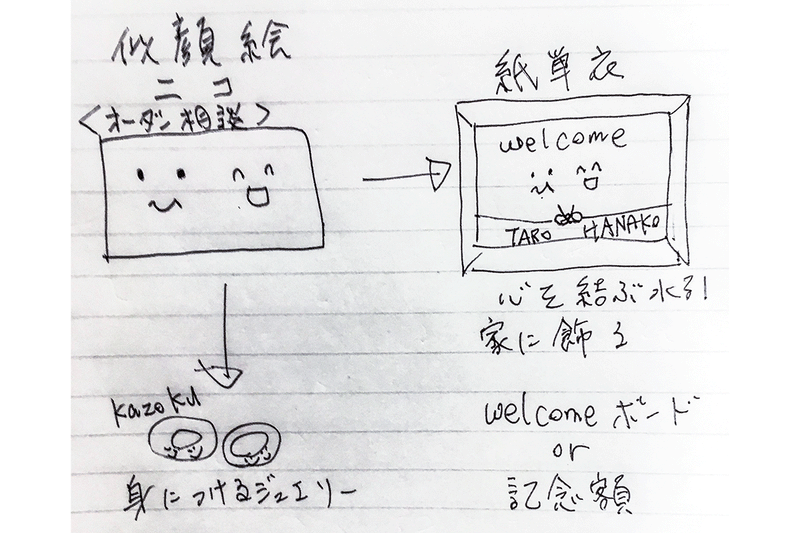 似顔絵
ニコ
<オーダー相談>
紙単衣
welcome
TARO HANAKO
心を結ぶ水引
家に飾る
kazoku
身につけるジュエリー
welcomeボード
or
記念額